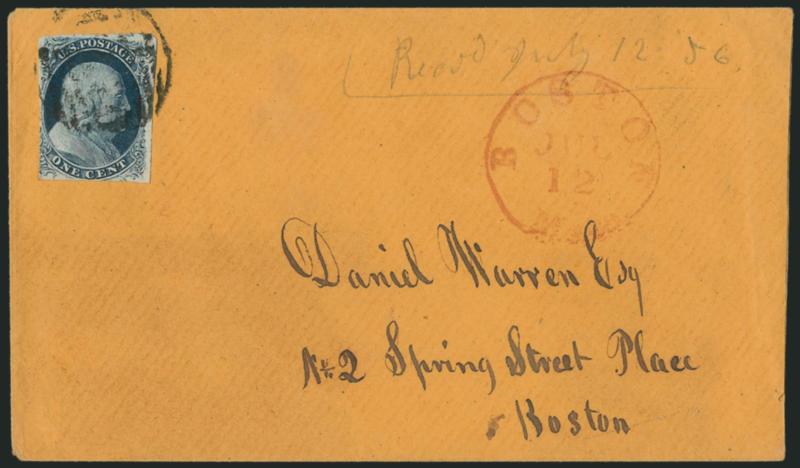 U.S. POSTAGE
ONE CENT
Recd July 12 56
BOSTON
JUL
12
Daniel Warren Esq
No 2 Spring Street Place
Boston